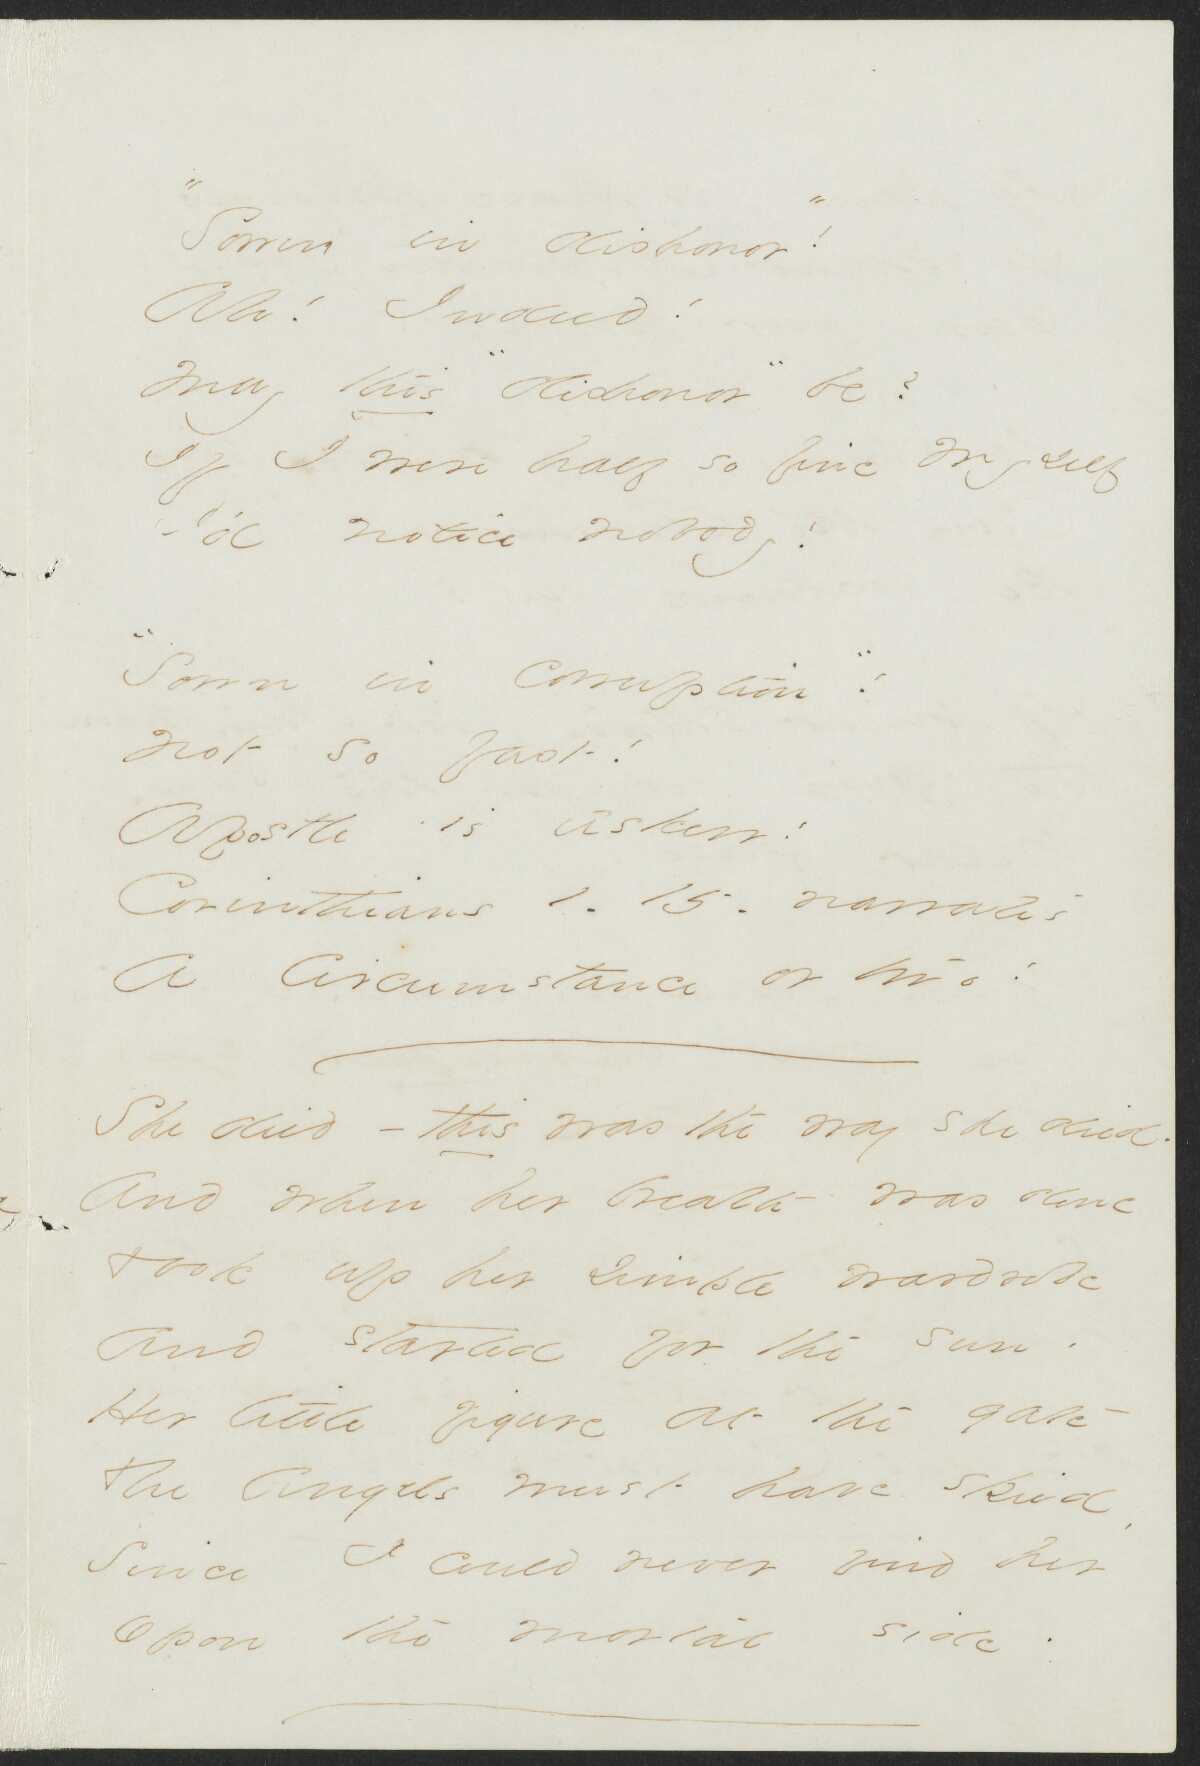 "Sown in dishonor"!
Ah! Indeed!
May this "dishonor" be?
If I were half so fine myself
I'd notice nobody!
"Sown in corruption"!
Not so fast!
Apostle is askew!
Corinthians 1. 15. narrates
A Circumstance or two!
She died – this was the way she died.
And when her breath was done
Took up her simple wardrobe
And started for the sun.
Her little figure at the gate
The Angels must have spied,
Since I could never find her
Upon the mortal side.